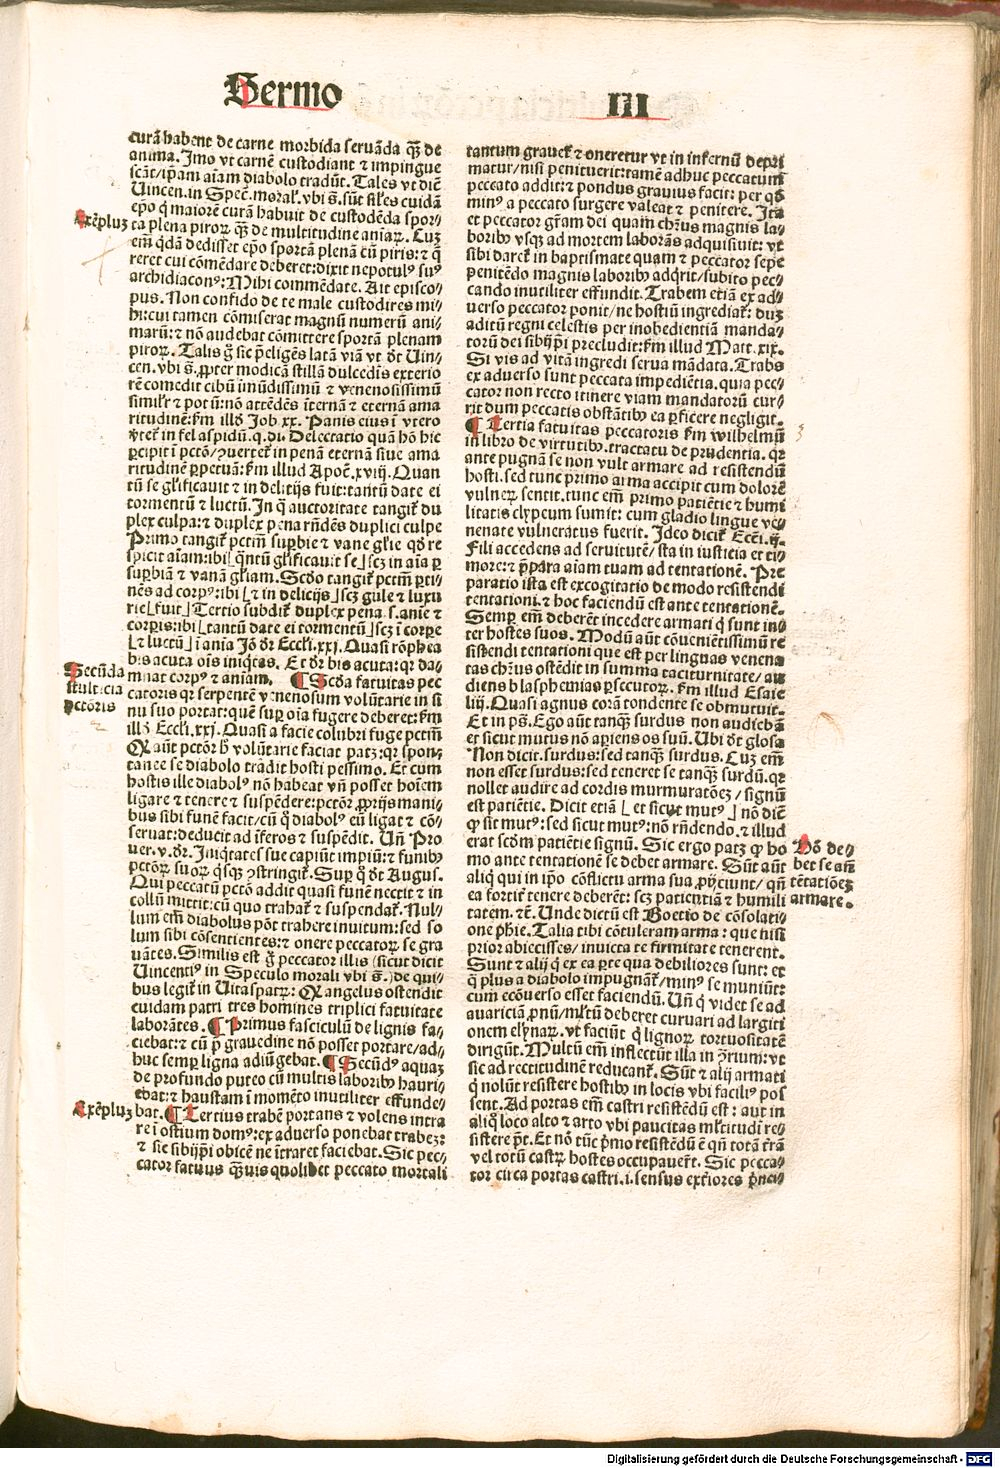 Sermo III
curā habent de carne morbida seruāda q̄ȝ de
anima. Imo vt carnē custodiant ⁊ impingue
scāt/ip̄am aīam diabolo tradūt. Tales vt dic̄
Uincen. in Spec̄. moral̓. vbi s̄. sūt sil̓es cuidā
ep̄o q̓ maiorē curā habuit de custodēda spor/
Exēpluȝ
ta plena piroꝝ q̄ȝ de multitudine aīaꝝ. Cuȝ
em̄ q̓dā dedisset ep̄o sportā plenā cū piris: ⁊ q̄
reret cui cōmēdare deberet: dixit nepotulꝰ suꝰ
archidiaconꝰ: Mihi commēdate. Ait episco/
pus. Non confido de te male custodires mi/
hi: cui tamen cōmiserat magnū numerū ani/
marū: ⁊ nō audebat cōmittere sportā plenam
piroꝝ. Talis g̊ sic p̄eligēs latā viā vt d̓t Uin/
cen. vbi s̄. ꝓpter modicā stillā dulcedīs exterio
rē comedit cibū imūdissimū ⁊ venenosissimū
simil̓r ⁊ potū: nō attēdēs īternā ⁊ eternā ama
ritudinē: ẜm illđ Job .xx. Panis eius ī vtero
ꝟtet̓ in fel aspidū. q. di. Delectatio quā hō hic
ꝑcipit ī pctō/ꝯuertet̓ in penā eternā siue ama
ritudinē ꝑpetuā: ẜm illud Apoc̄. xviij. Quan
tū se gl̓ificauit ⁊ in delitijs fuit: tantū date ei
tormentū ⁊ luctū. In q̄ auctoritate tangit̓ du
plex culpa: ⁊ duplex pena rn̄dēs duplici culpe
Primo tangit̓ pctm̄ suꝑbie ⁊ vane gl̓ie qđ re
spicit aīam: ibi⌊q̄ntū gl̓ificauit se⌋scȝ in aīa ꝑ
suꝑbiā ⁊ vanā gl̓iam. Scđo tangit̓ pctm̄ ꝑti/
nēs ad corpꝰ: ibi⌊⁊ in delicijs⌋scȝ gule ⁊ luxu
rie⌊fuit⌋Tertio subdit̓ duplex pena .s. anīe ⁊
corꝑis: ibi⌊tantū date ei tormentū⌋scȝ ī corꝑe
⌊⁊ luctū⌋ī anīa Jō d̓r Eccl̓i. xxj. Quasi rōphea
bis acuta oīs iniq̓tas. Et d̓r bis acuta: qꝛ da/
Secūda
stulticia
pctōris
mnat corpꝰ ⁊ aniam. ¶ Scđa fatuitas pec
catoris qꝛ serpentē venenosum volūtarie in si
nu suo portat: quē suꝑ oīa fugere deberet: ẜm
illđ Eccl̓i. xxj. Quasi a facie colubri fuge pctm̄
Qꝫ aūt pctōr h̓ volūtarie faciat patȝ: qꝛ spon/
tanee se diabolo tradit hosti pessimo. Et cum
hostis ille diabolꝰ nō habeat vn̄ posset hoīem
ligare ⁊ tenere ⁊ suspēdere: pctōr ꝓprijs mani/
bus sibi funē facit/cū q̓ diabolꝰ eū ligat ⁊ cō/
seruat: deducit ad īferos ⁊ suspēdit. Un̄ Pro
uer. v. d̓r. Iniq̓tates sue capiūt impiū: ⁊ funibꝰ
pctōꝝ suoꝝ q̓sqꝫ ꝯstringit̓. Suꝑ q̓ d̓t Augus.
Qui peccatū pctō addit quasi funē nectit ⁊ in
collū mittit: cū quo trahat̓ ⁊ suspendat̓. Nul/
lum em̄ diabolus pōt trahere inuitum: sed so
lum sibi cōsentientes: ⁊ onere peccatoꝝ se gra
uātes. Similis est g̊ peccator illis (sicut dicit
Uincentiꝰ in Speculo morali vbi s̄.) de qui/
bus legit̓ in Uitaspatꝝ: Qꝫ angelus ostendit
cuidam patri tres homines triplici fatuitate
laborātes. ¶ Primus fasciculū de lignis fa/
ciebat: ⁊ cū p̄ grauedine nō posset portare/ad/
huc semꝑ ligna adiūgebat. ¶ Secūdꝰ aquaȝ
de profundo puteo cū multis laboribꝰ hauri/
ebat: ⁊ haustam ī momēto inutiliter effunde/
Exēpluȝ
bat. ¶ Tertius trabē portans ⁊ volens intra
re ī ostium domꝰ: ex aduerso ponebat trabeȝ:
⁊ sic sibijp̄i obicē ne ītraret faciebat. Sic pec/
cator fatuus q̄ȝuis quolibet peccato mortali
tantum grauet̓ ⁊ oneretur vt in infernū depri
matur/nisi penituerit: tamē adhuc peccatum
peccato addit: ⁊ pondus grauius facit: per qđ
minꝰ a peccato surgere valeat ⁊ penitere. Ita
et peccator gr̄am dei quam ch̄rus magnis la/
boribꝰ vsqꝫ ad mortem laborās adquisiuit: vt
sibi daret̓ in baptismate quam ⁊ peccator sepe
penitēdo magnis laboribꝰ adq̓rit/subito pec/
cando inutiliter effundit. Trabem etiā ex ad/
uerso peccator ponit/ne hostiū ingrediat̓: duȝ
aditū regni celestis per inobedientiā manda/
torū dei sibijp̄i precludit: ẜm illud Matt. xix.
Si vis ad vitā ingredi serua mādata. Trabs
ex aduerso sunt peccata impediētia. quia pec/
cator non recto itinere viam mandatorū cur/
rit dum peccatis obstātibꝰ ea ꝑficere negligit.
¶ Tertia fatuitas peccatoris ẜm wilhelmū
in libro de virtutibꝰ. tractatu de prudentia. qꝛ
ante pugnā se non vult armare ad resistendū
hosti. sed tunc primo arma accipit cum dolorē
vulneꝝ sentit. tunc em̄ primo patiētie ⁊ humi
litatis clypeum sumit: cum gladio lingue ve/
nenate vulneratus fuerit. Ideo dicit̓ Ecci. ij.
Fili accedens ad seruitutē/sta in iusticia et ti/
more: ⁊ p̄para aiam tuam ad tentationē. Pre
paratio ista est excogitatio de modo resistendi
tentationi. ⁊ hoc faciendū est ante tentationē.
Semꝑ em̄ deberēt incedere armati q̓ sunt in/
ter hostes suos. Modū aūt cōueniētissimū re
sistendi tentationi que est per linguas venena
tas ch̄rus ostēdit in summa taciturnitate/au
diens blasphemias ꝑsecutoꝝ. ẜm illud Esaie
liij. Quasi agnus corā tondente se obmutuit.
Et in ps̄. Ego aūt tanqȝ surdus non audiebā
et sicut mutus nō aperiens os suū. Ubi d̓t glosa
Non dicit. surdus: sed tanqȝ surdus. Cuȝ em̄
non esset surdus: sed teneret se tanqȝ surdū. qꝛ
nollet audire ad cordis murmuratōeȝ/signū
est patiētie. Dicit etiā⌊et sicut mutꝰ⌋nō dic̄
ꝙ sit mutꝰ: sed sicut mutꝰ: nō rn̄dendo. ⁊ illud
Hō de/
bet se an̄
tētatiōeȝ
armare.
erat scđm patiētie signū. Sic ergo patȝ ꝙ ho
mo ante tentationē se debet armare. Sūt aūt
aliq̓ qui in ip̄o cōflictu arma sua ꝓijciunt/qn̄
ea fortit̓ tenere deberēt: scȝ patientiā ⁊ humili
tatem. ⁊c̄. Unde dictū est Boetio de cōsolati/
one ph̄ie. Talia tibi cōtuleram arma: que nisi
prior abiecisses/inuicta te firmitate tenerent.
Sunt ⁊ alij q̓ ex ea parte qua debiliores sunt: et
q̄ plus a diabolo impugnāt̓/minꝰ se muniūt:
cum ecōuerso esset faciendū. Un̄ q̓ videt se ad
auariciā ꝓnū/ml̓tū deberet curuari ad largiti
onem elyna̓ꝝ. vt faciūt q̓ lignoꝝ tortuositatē
dirigūt. Multū em̄ inflectūt illa in ꝯrium: vt
sic ad rectitudinē reducant̓. Sūt ⁊ alij armati
q̓ nolūt resistere hostibꝰ in locis vbi faciliꝰ pos
sent. Ad portas em̄ castri resistēdū est: aut in
aliq̓ loco alto ⁊ arto vbi paucitas ml̓titudi re/
sistere p̄t. Et nō tūc p̓mo resistēdū ē qn̄ totā tr̄ā
vel totū castꝝ hostes occupauer̄t. Sic pecca/
tor circa portas castri. i. sensus ext̓iores p̓nci/